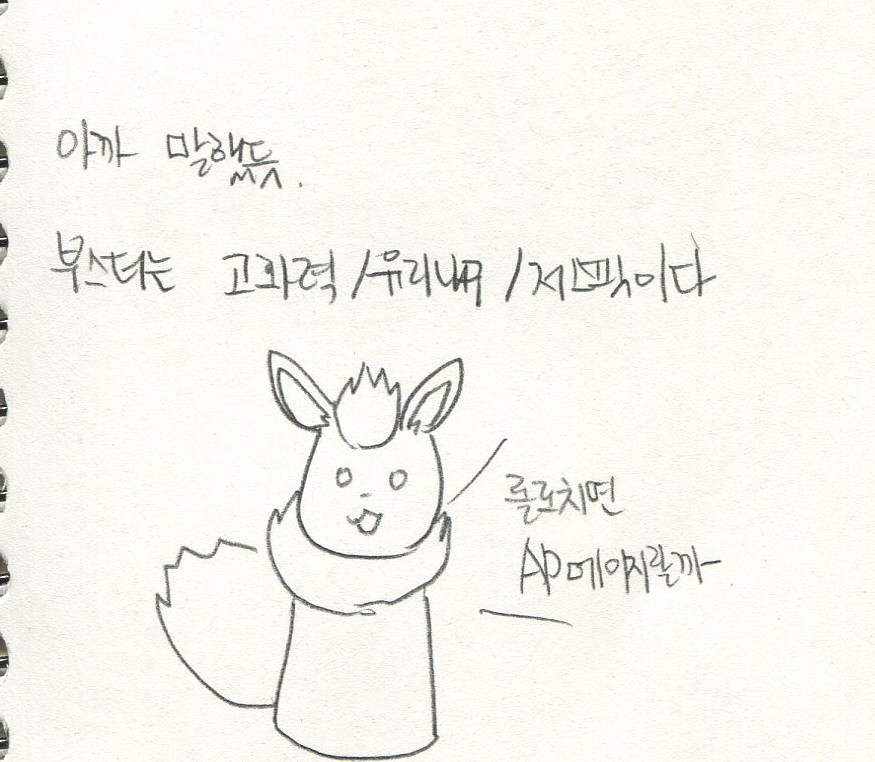 아까 말했듯.
부스터는 고화력/유리내구/저스핏이다
롤로치면
AP메이지랄까